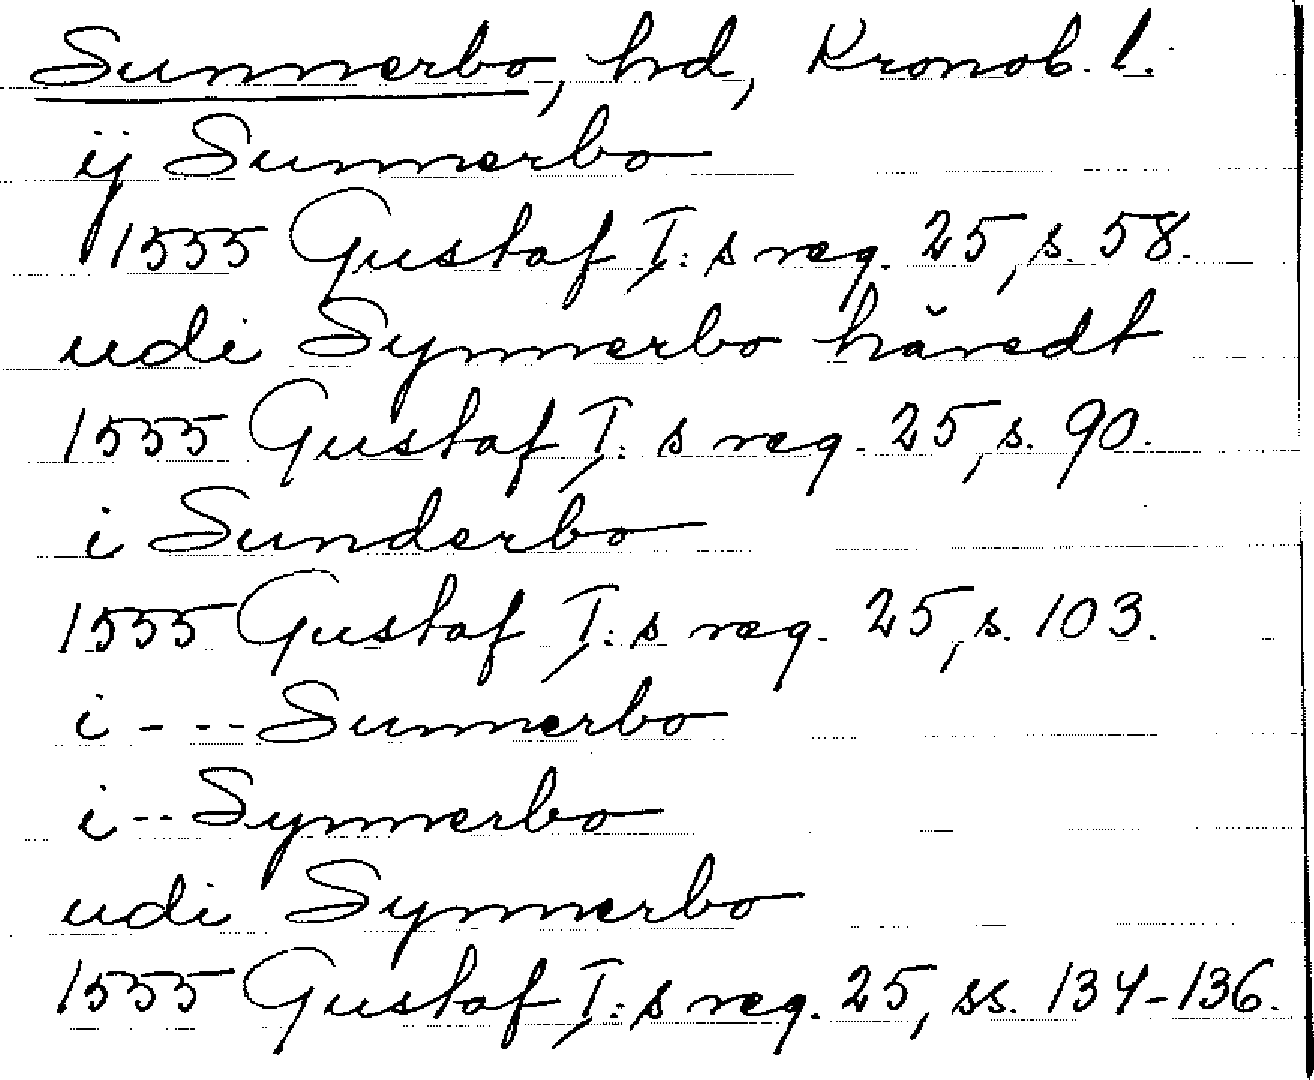 Sunnerbo, hd, Kronob. l.
ij Sunnerbo
1555 Gustaf I: s reg. 25, s. 58.
udi Synnerbo häredt
1555 Gustaf I: s reg. 25, s. 90.
i Sunderbo
1555 Gustaf I: s reg. 25, s. 103.
i - - - Sunnerbo
i - - Synnerbo
udi Synnerbo
1555 Gustaf I: s reg. 25, ss. 134-136.